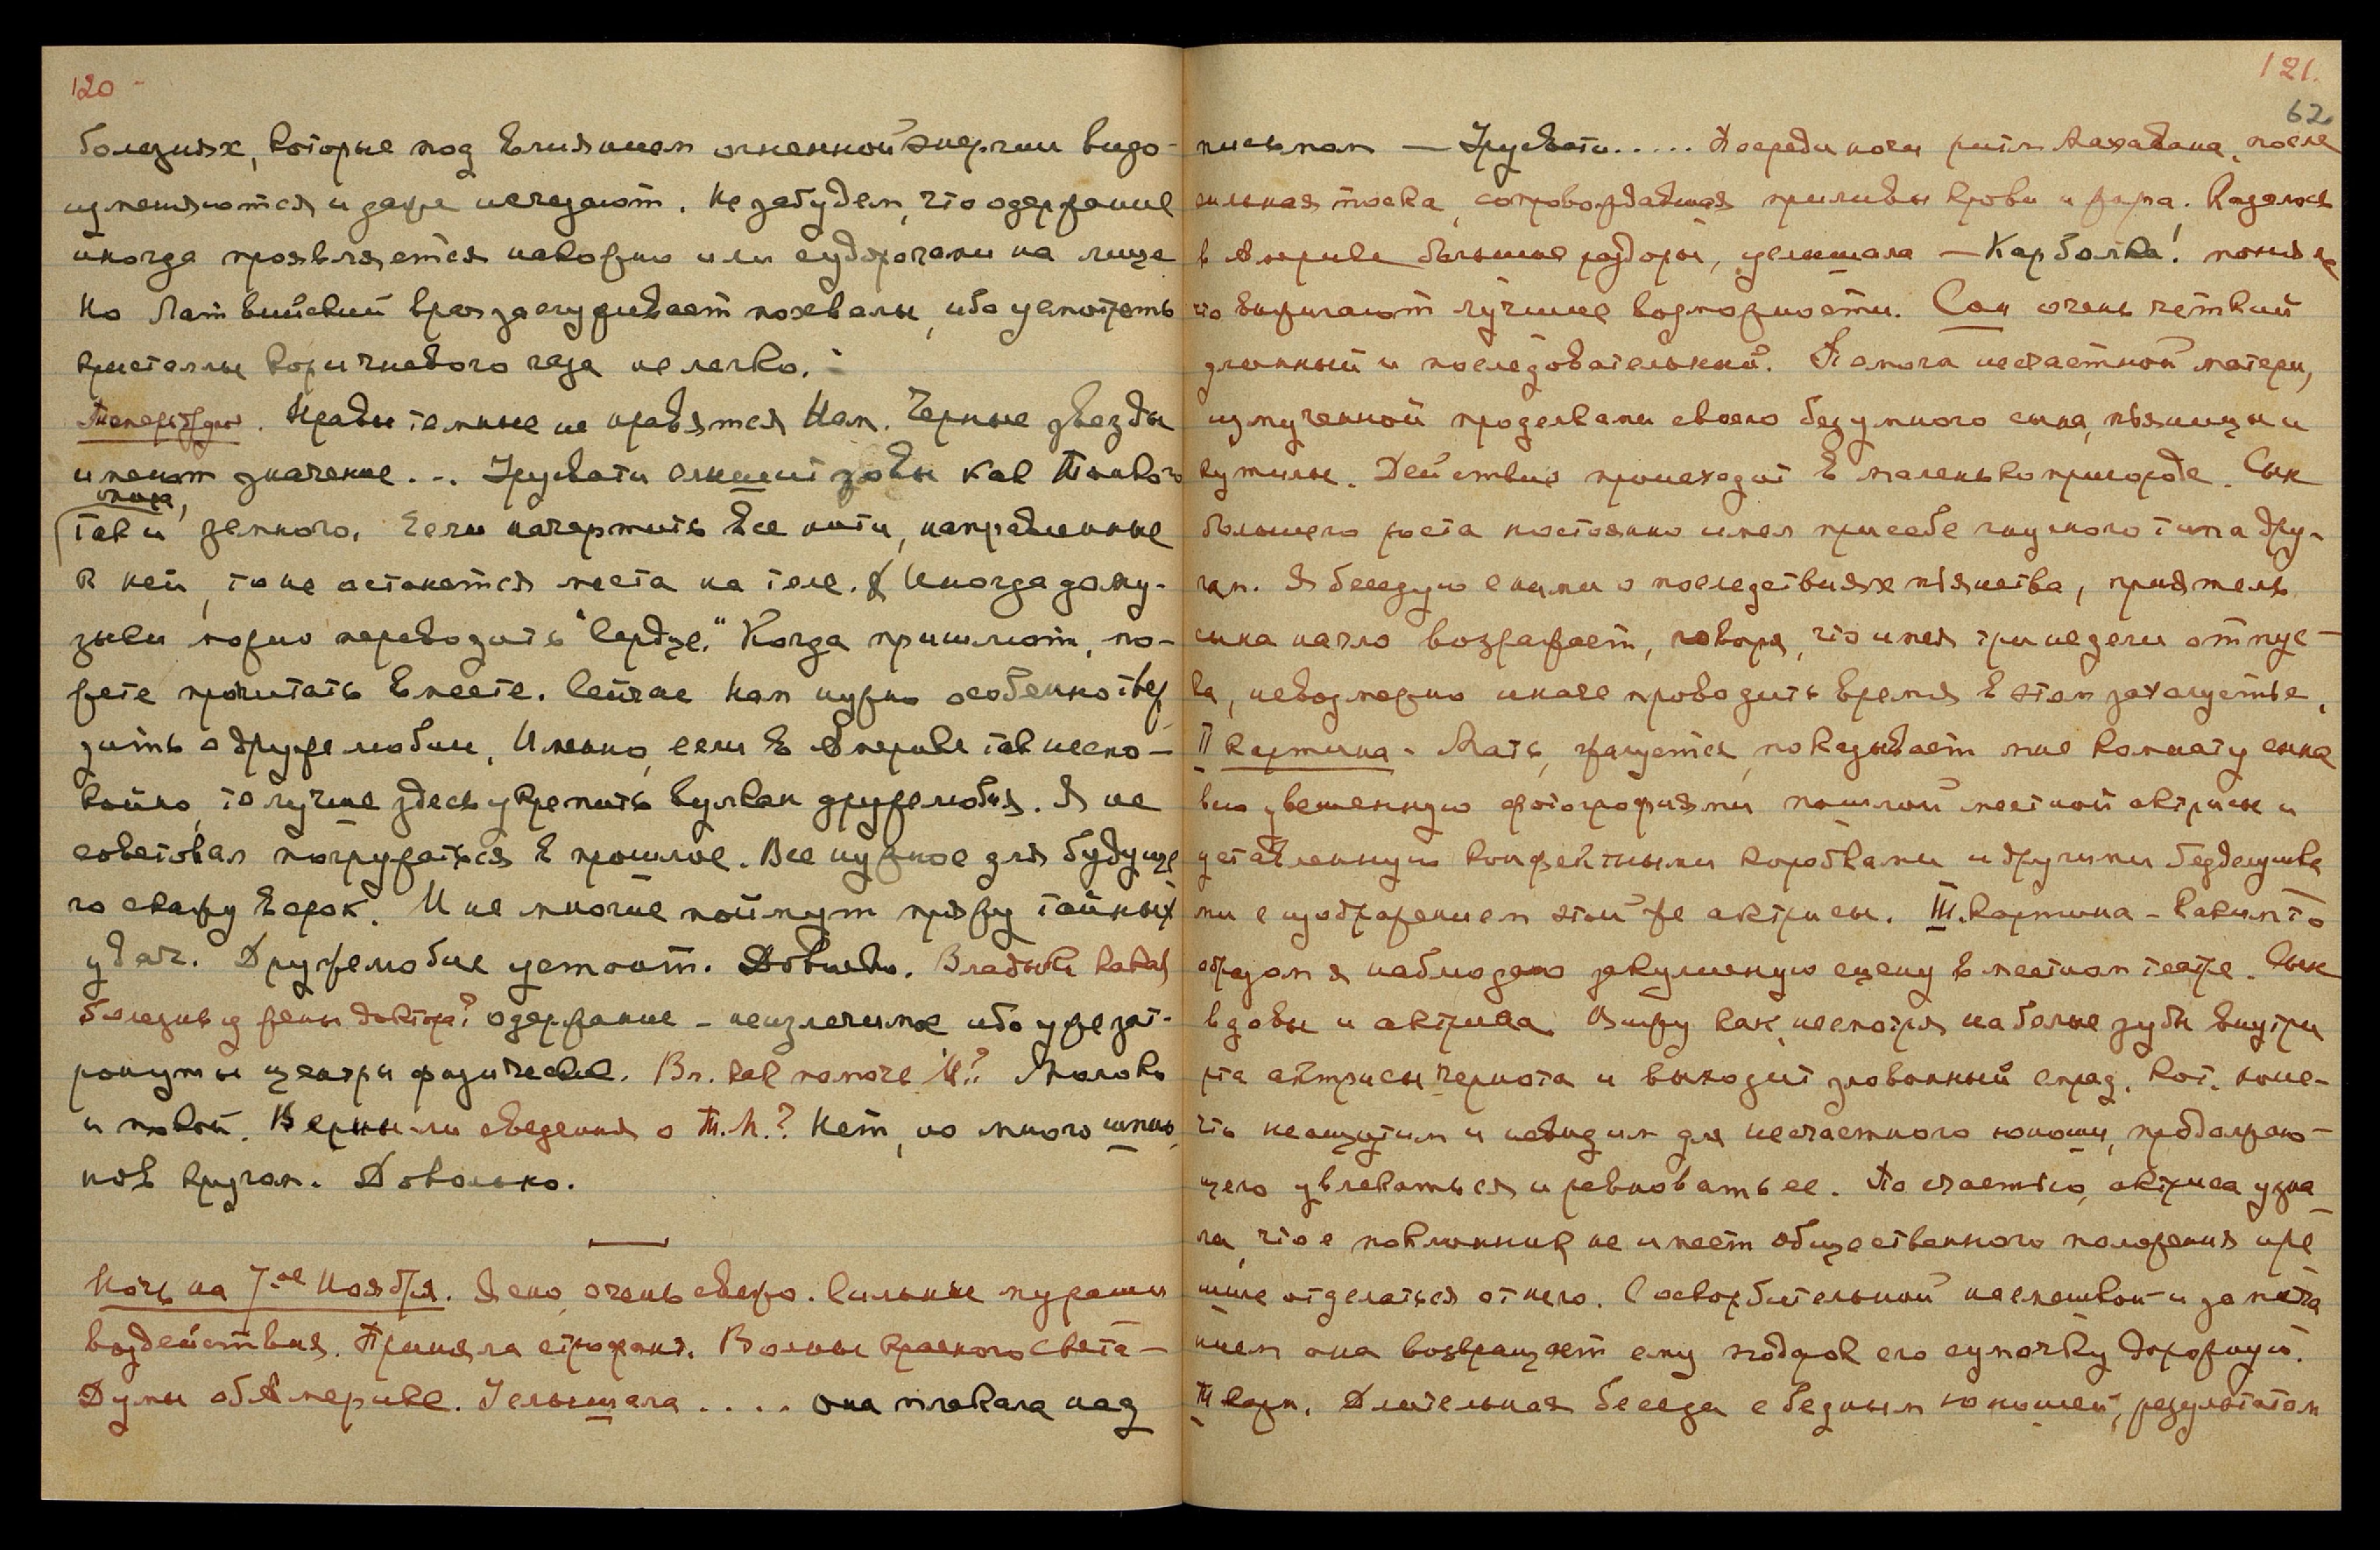 120 -
болезнях, которые под влиянием огненной энергии видо-
изменяются и даже исчезают. Не забудем, что одержание
иногда проявляется накожно или судорогами на лице
Но Латвийский врач заслуживает похвалы, ибо усмотреть
кристаллы коричневого газа не легко. -
. Нравы темные не нравятся Нам. Черные звезды
имеют значение... Урусвати слышит зовы как Тонкого
мира,
так и земного. Если начертить все нити, направленные
к ней, то не останется места на теле. Иногда даже
можно переводить "Сердце." Когда пришлют, мо-
жете прочитать вместе. Сейчас Нам нужно особенно твер
дить о дружелюбии. Именно, если в Америке так неспо-
койно, то лучше здесь укрепить вулкан дружелюбия. Я не
советовал погружаться в прошлое. Все нужное для будуще
го скажу в срок. И не многие поймут пряжу тайных
удач. Дружелюбие устоит. Довольно. Владыка какая
болезнь у жены доктора? одержание - неизлечимое ибо уже зат-
ронуты центры физические. Вл. как помочь И.? Молоко
и покой. Верны-ли сведения о Т.Л.? Нет, но много шпио
нов кругом. Довольно.
Ночь на 7-ое Ноября. Ясно, очень свежо. Сильные мураши
воздействия. Приняла строфант. Волны красного света -
Думы об Америке. Услышала .... она плакала над
121.
62
письмом — Урусвати..... Посреди ночи ритм Махавана, после
сильная тоска, сопровождавшая приливы крови и жара. Казалось
в Америке большие раздоры, услышала — Карболка! поняла
что выжигают лучшие возможности. Сон очень четкий
длинный и последовательный. Помогла несчастной матери,
измученной проделками своего безумного сына, пьяницы и
кутилы. Действие происходит в маленьком пригороде. Сын
большого роста постоянно имел при себе гнусного типа дру-
гом. Я беседую с ними о последствиях пьянства, приятель
сына нагло возражает, говоря, что имея три недели отпус-
ка, невозможно иначе проводить время в этом захолустье,
II картина - Мать, жалуется, показывает мне комнату сына
всю увешенную фотографиями пошлой местной актрисы и
уставленную конфектными коробками и другими безделушка
ми с изображением этой же актрисы. III. картина - каким то
образом я наблюдаю закулисную сцену в местном театре. Сын
вдовы и актриса. Вижу как, несмотря на белые зубы внутри
рта актрисы чернота и выходит зловонный смрад, кот. коне-
что неощутим и невидим для несчастного юноши, продолжаю-
щего увлекаться и ревновать ее. По счастью, актриса узна
ла, что е поклонник не имеет общественного положения и ре
шила отделаться от него. С оскорбительной насмешкой и замеча
нием она возвращает ему подарок его сумочку дорожную.
карт. Длительная беседа с бедным юношей, результатом